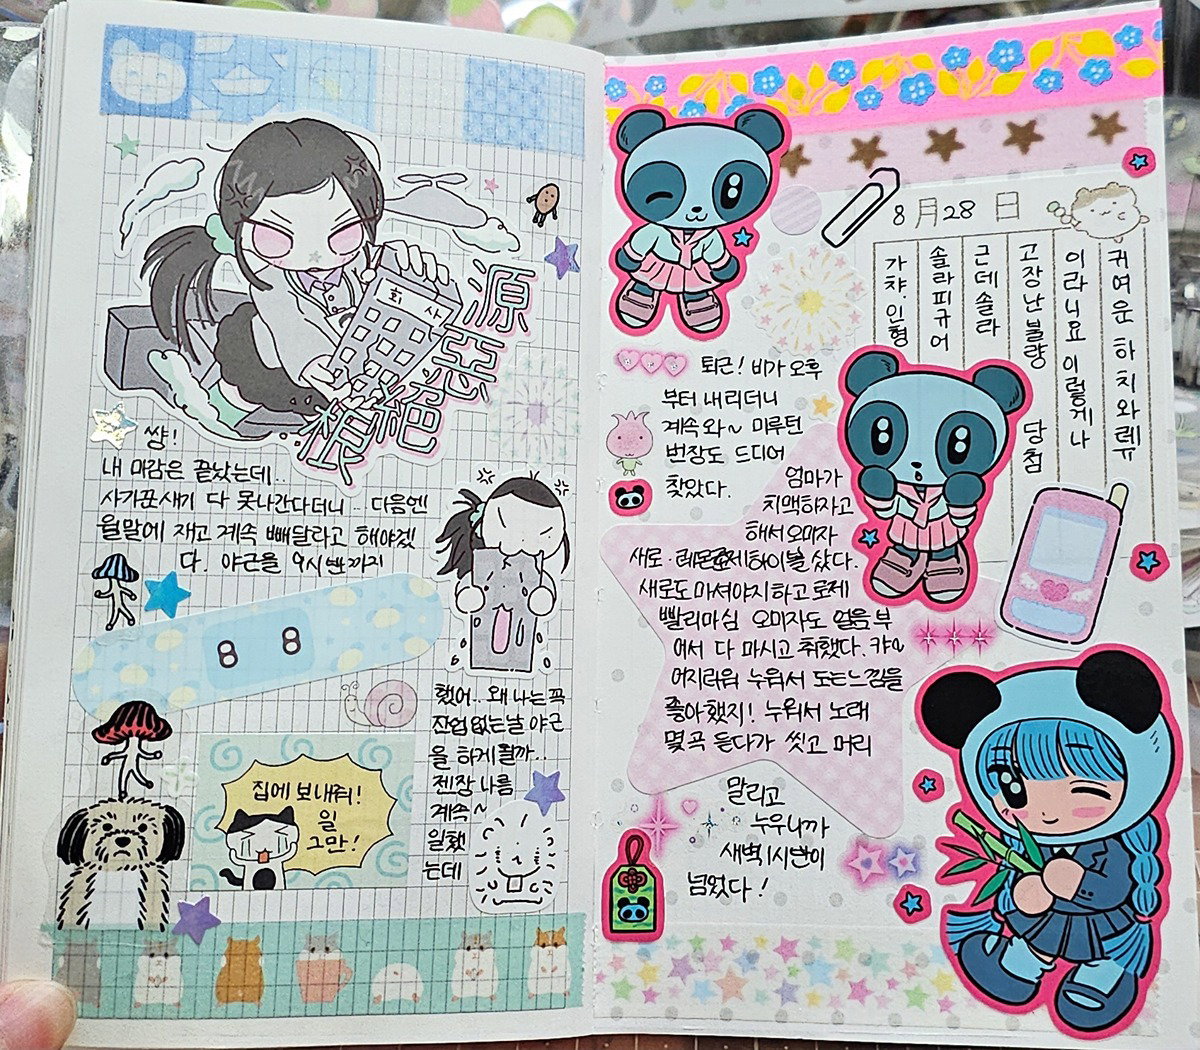 회사
源
惡
絶
根
쌍!
내 마감은 끝났는데..
다 못나간다더니.. 다음엔
월말에 재고 계속 빼달라고 해야겠
다. 야근을 9시반까지
했어.. 왜 나는 꼭
잔업 없는날 야근
을 하게 될까..
젠장 나름
계속~
일했
는데
집에 보내줘!
일
그만!
8月28日
가챠.인형
솔라피규어
근데솔라
고장난불량 당첨
이라니요 이렇게나
귀여운 하치와레
퇴근! 비가 오후
부터 내리더니
계속 와~ 미루던
번장도 드디어
찾았다.
엄마가
치맥하자고
해서 오미자
새로. 하이볼 샀다.
새로도 마셔야지하고 로제
빨리마심 오미자도 얼음 부
어서 다 마시고 취했다. 캬~
어지러워 누워서 도는느낌을
좋아했지! 누워서 노래
몇곡 듣다가 씻고 머리
말리고
누우니까
새벽1시반이
넘었다!